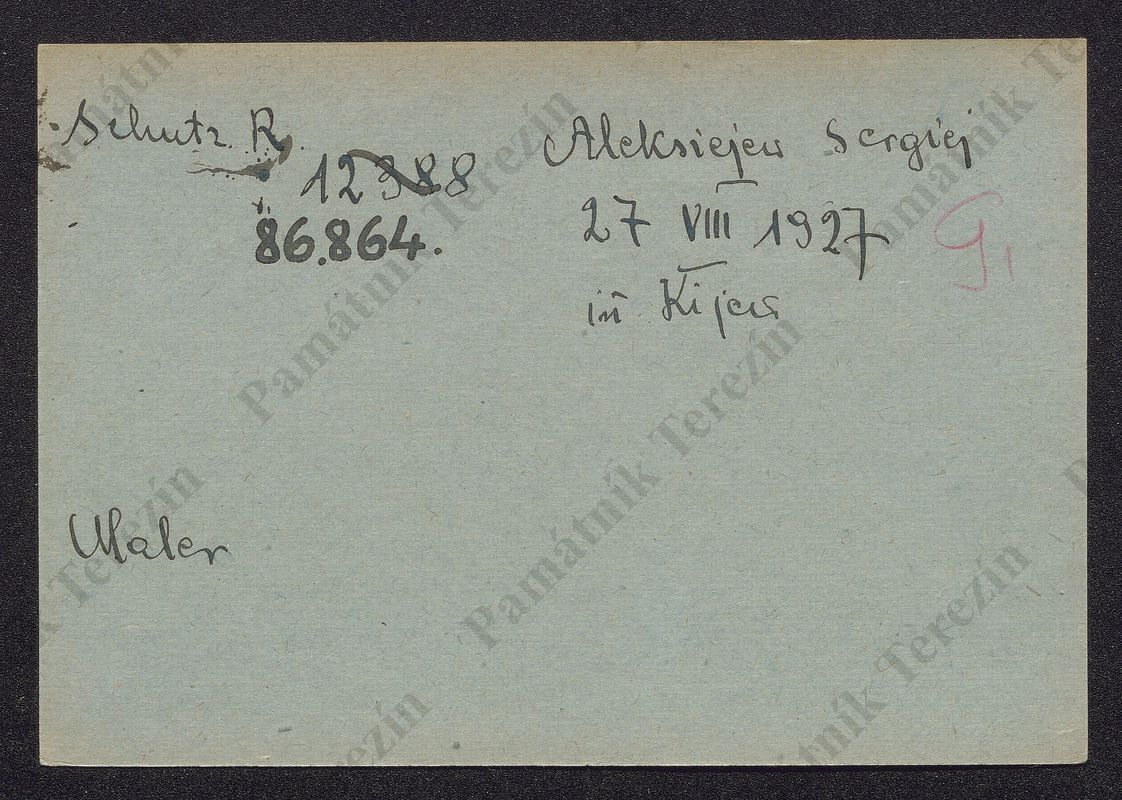 Schutz R. Aleksiejew Sergiej
12388
86.864. 27 VIII 1927
in Kijew
Maler
Památník Terezín